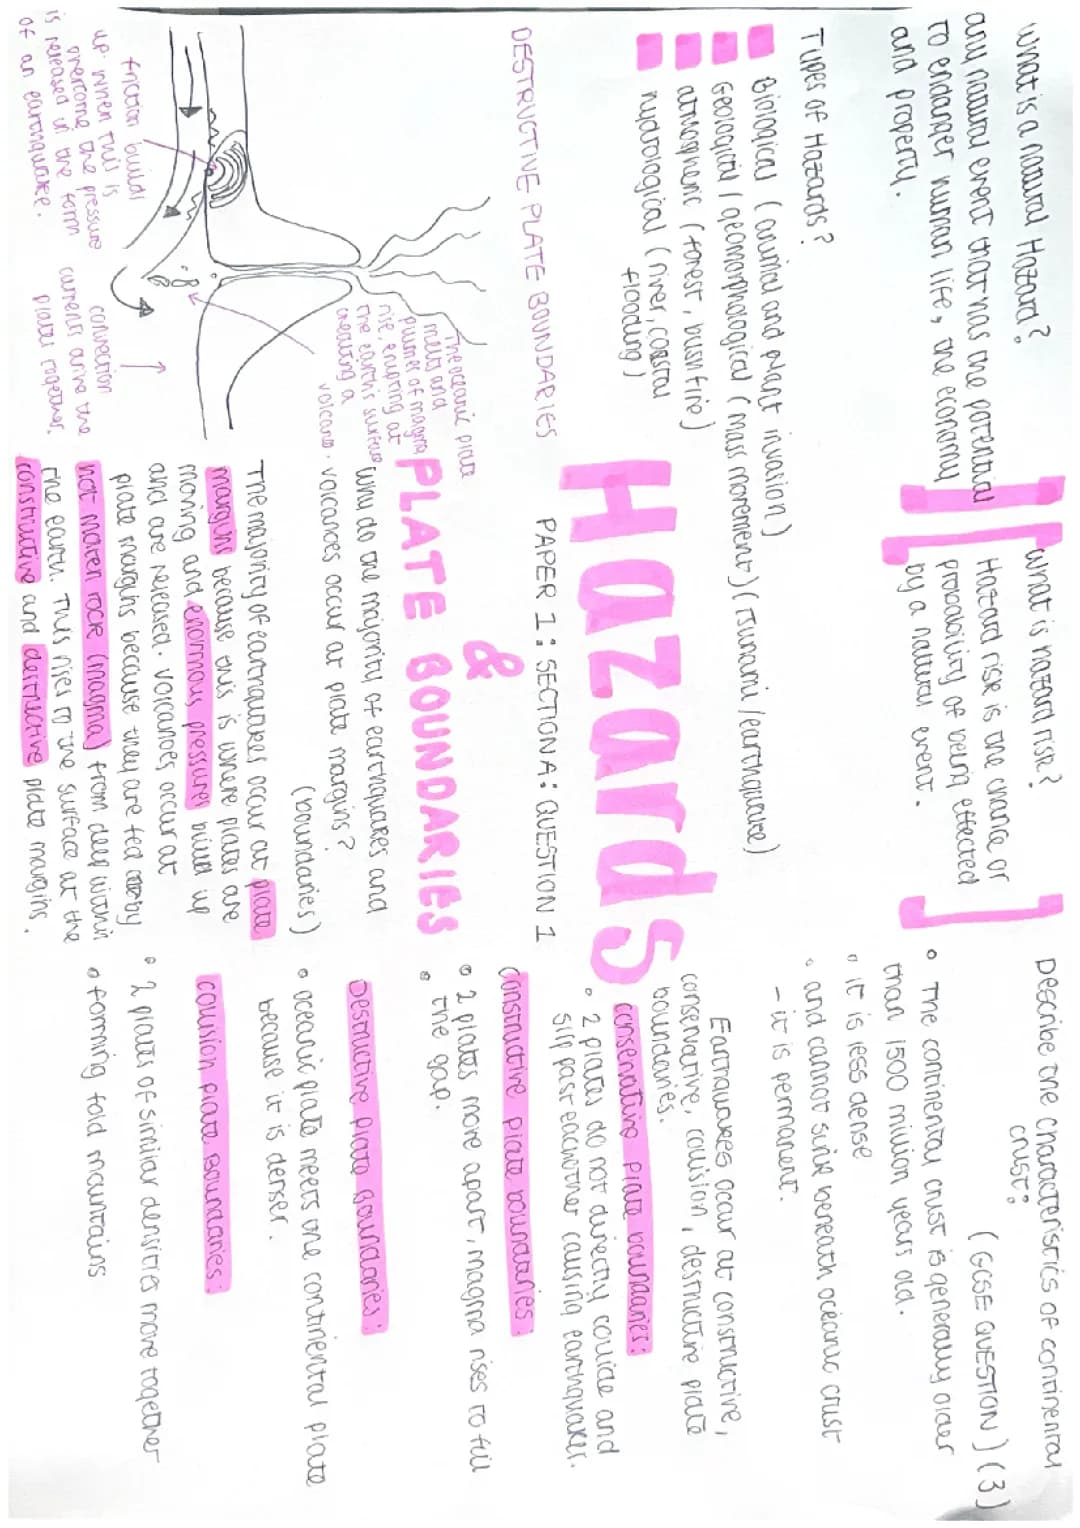 What is a natural Hazard?
any natural event that has the potential
to endanger human life, the economy
and property.
What is hazard risk?
Hazard risk is the chance or
probability of being effected
by a natural event.
Describe the characteristics of continental
crust?
(GCSE QUESTION) (3)
• The continental crust is generally older
than 1500 million years old.
• it is less dense
• and cannot sink beneath oceanic crust
- it is permanent.
Types of Hazards?
Biological (animal and plant invasion)
Geological / geomorphological (mass movement) (Tsunami / earthquake)
atmospheric (forest, bushfire)
hydrological (river, coastal
flooding)
Hazards
PAPER 1: SECTION A: QUESTION 1
&
PLATE BOUNDARIES
Earthquakes occur at constructive,
conservative, collision, destructive plate
boundaries.
conservative plate boundaries:
• 2 plates do not directly collide and
slip past eachother causing earthquakes.
constructive plate boundaries:
• 2 plates move apart, magma rises to fill
• the gap.
Destructive plate Boundaries:
• oceanic plate meets the continental plate
because it is denser.
collision plate Boundaries:
• 2 plates of similar densities move together
• forming fold mountains
DESTRUCTIVE PLATE BOUNDARIES
The oceanic plate
melts and
plumes of magma
rise, erupting at
the earth's surface
creating a
volcano.
friction builds
up. When this is
overcome the pressure
is released in the form
of an earthquake.
convection
currents drive the
plates together.
Why do the majority of earthquakes and
volcanoes occur at plate margins?
(boundaries)
The majority of earthquakes occur at plate
margins because this is where plates are
moving and enormous pressures build up
and are released. Volcanoes occur at
plate margins because they are fed by
hot molten rock (magma) from deep within
the earth. This rises to the surface at the
constructive and destructive plate margins.